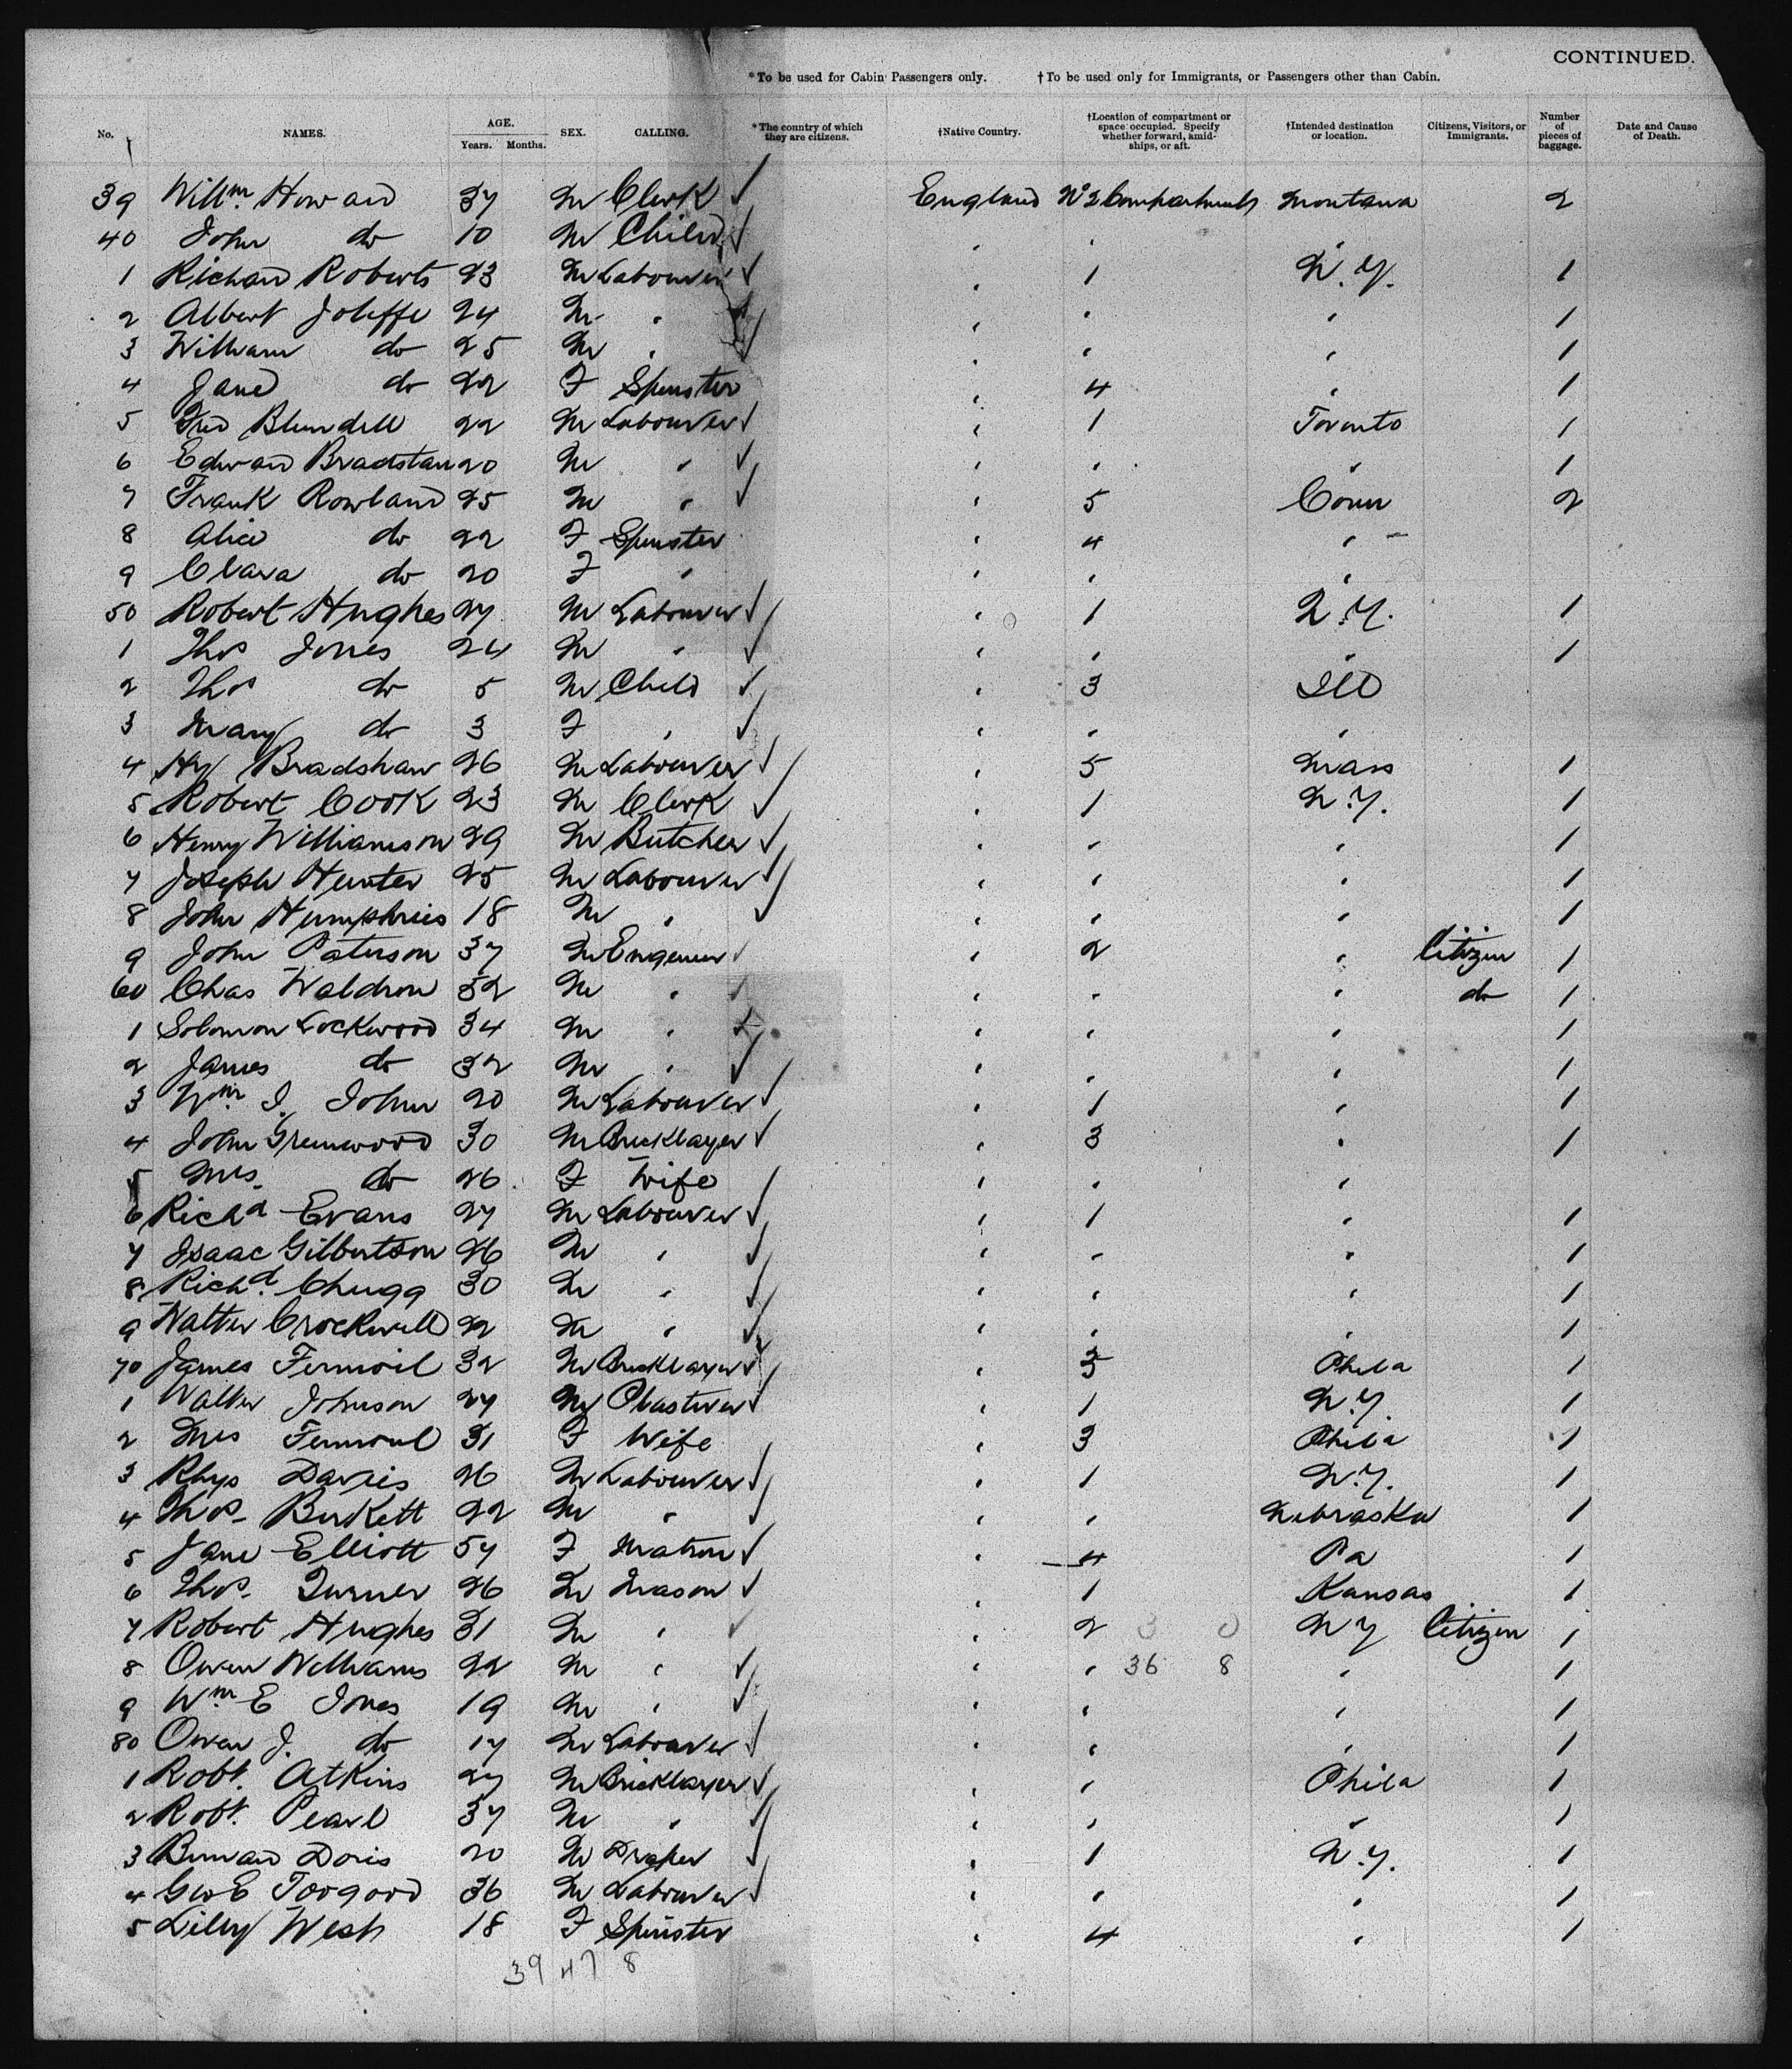 CONTINUED.
*To be used for Cabin Passengers only. †To be used only for Immigrants, or Passengers other than Cabin.
No. NAMES. AGE. Years. Months. SEX. CALLING. *The country of which they are citizens. †Native Country. †Location of compartment or space occupied. Specify whether forward, amidships, or aft. †Intended destination or location. Citizens, Visitors, or Immigrants. Number of pieces of baggage. Date and Cause of Death.
39 Willm. Howard 37 M Clerk ✓ England No 2 Compartment Montana 2
40 John do 10 M Child ✓ " " "
1 Richard Roberts 23 M Labourer ✓ " 1 N.Y. 1
2 Albert Joliffe 24 M " ✓ " " " 1
3 William do 25 M " ✓ " " " 1
4 Jane do 22 F Spinster " 4 " 1
5 Fred Blundell 22 M Labourer ✓ " 1 Toronto 1
6 Edward 20 M " ✓ " " " 1
7 Frank Rowland 25 M " ✓ " 5 Conn 2
8 Alice do 22 F Spinster " 4 "
9 Clara do 20 F " " " "
50 Robert Hughes 27 M Labourer ✓ " 1 N.Y. 1
1 Thos Jones 24 M " ✓ " " " 1
2 Thos do 5 M Child ✓ " 3 Ill
3 Mary do 3 F " ✓ " " "
4 Hy Bradshaw 26 M Labourer ✓ " 5 Mass 1
5 Robert Cook 23 M Clerk ✓ " 1 N.Y. 1
6 Henry Williamson 29 M Butcher ✓ " " " 1
7 Joseph Hunter 25 M Labourer ✓ " " " 1
8 John Humphries 18 M " ✓ " " " 1
9 John Paterson 37 M Engeneer ✓ " 2 " Citizen 1
60 Chas Waldron 52 M " ✓ " " " do 1
1 Solomon Lockwood 34 M " ✓ " " " 1
2 James do 32 M " ✓ " " " 1
3 Wm J. John 20 M Labourer ✓ " 1 " 1
4 John Greenwood 30 M Bricklayer ✓ " 3 " 1
5 Mrs. do 26 F Wife " " "
6 Richd Evans 27 M Labourer ✓ " 1 " 1
7 Isaac Gilbertson 26 M " ✓ " " " 1
8 Richd. Chugg 30 M " ✓ " " " 1
9 Walter Crockwell 22 M " ✓ " " " 1
70 James 32 M Bricklayer ✓ " Phila 1
1 Walter Johnson 27 M Plasterer ✓ " 1 N.Y. 1
2 Mrs 31 F Wife " 3 Phila 1
3 Rhys Davies 26 M Labourer ✓ " 1 N.Y. 1
4 Thos. Birkett 22 M " ✓ " " Nebraska 1
5 Jane Elliott 54 F Matron ✓ " 4 Pa 1
6 Thos. Turner 26 M Mason ✓ " 1 Kansas 1
7 Robert Hughes 31 M " ✓ " 2 3 0 NY Citizen 1
8 Owen Williams 22 M " ✓ " " 36 8 " 1
9 Wm E Jones 19 M " ✓ " " " 1
80 Owen J. do 17 M Labourer ✓ " " " 1
1 Robt. Atkins 27 M Bricklayer ✓ " " Phila 1
2 Robt. Pearl 37 M " ✓ " " " 1
3 Bernard Doris 20 M Draper ✓ " 1 N.Y. 1
4 Geo E Toogood 36 M Labourer ✓ " " " 1
5 Lilly West 18 F Spinster " 4 " 1
39 47 8